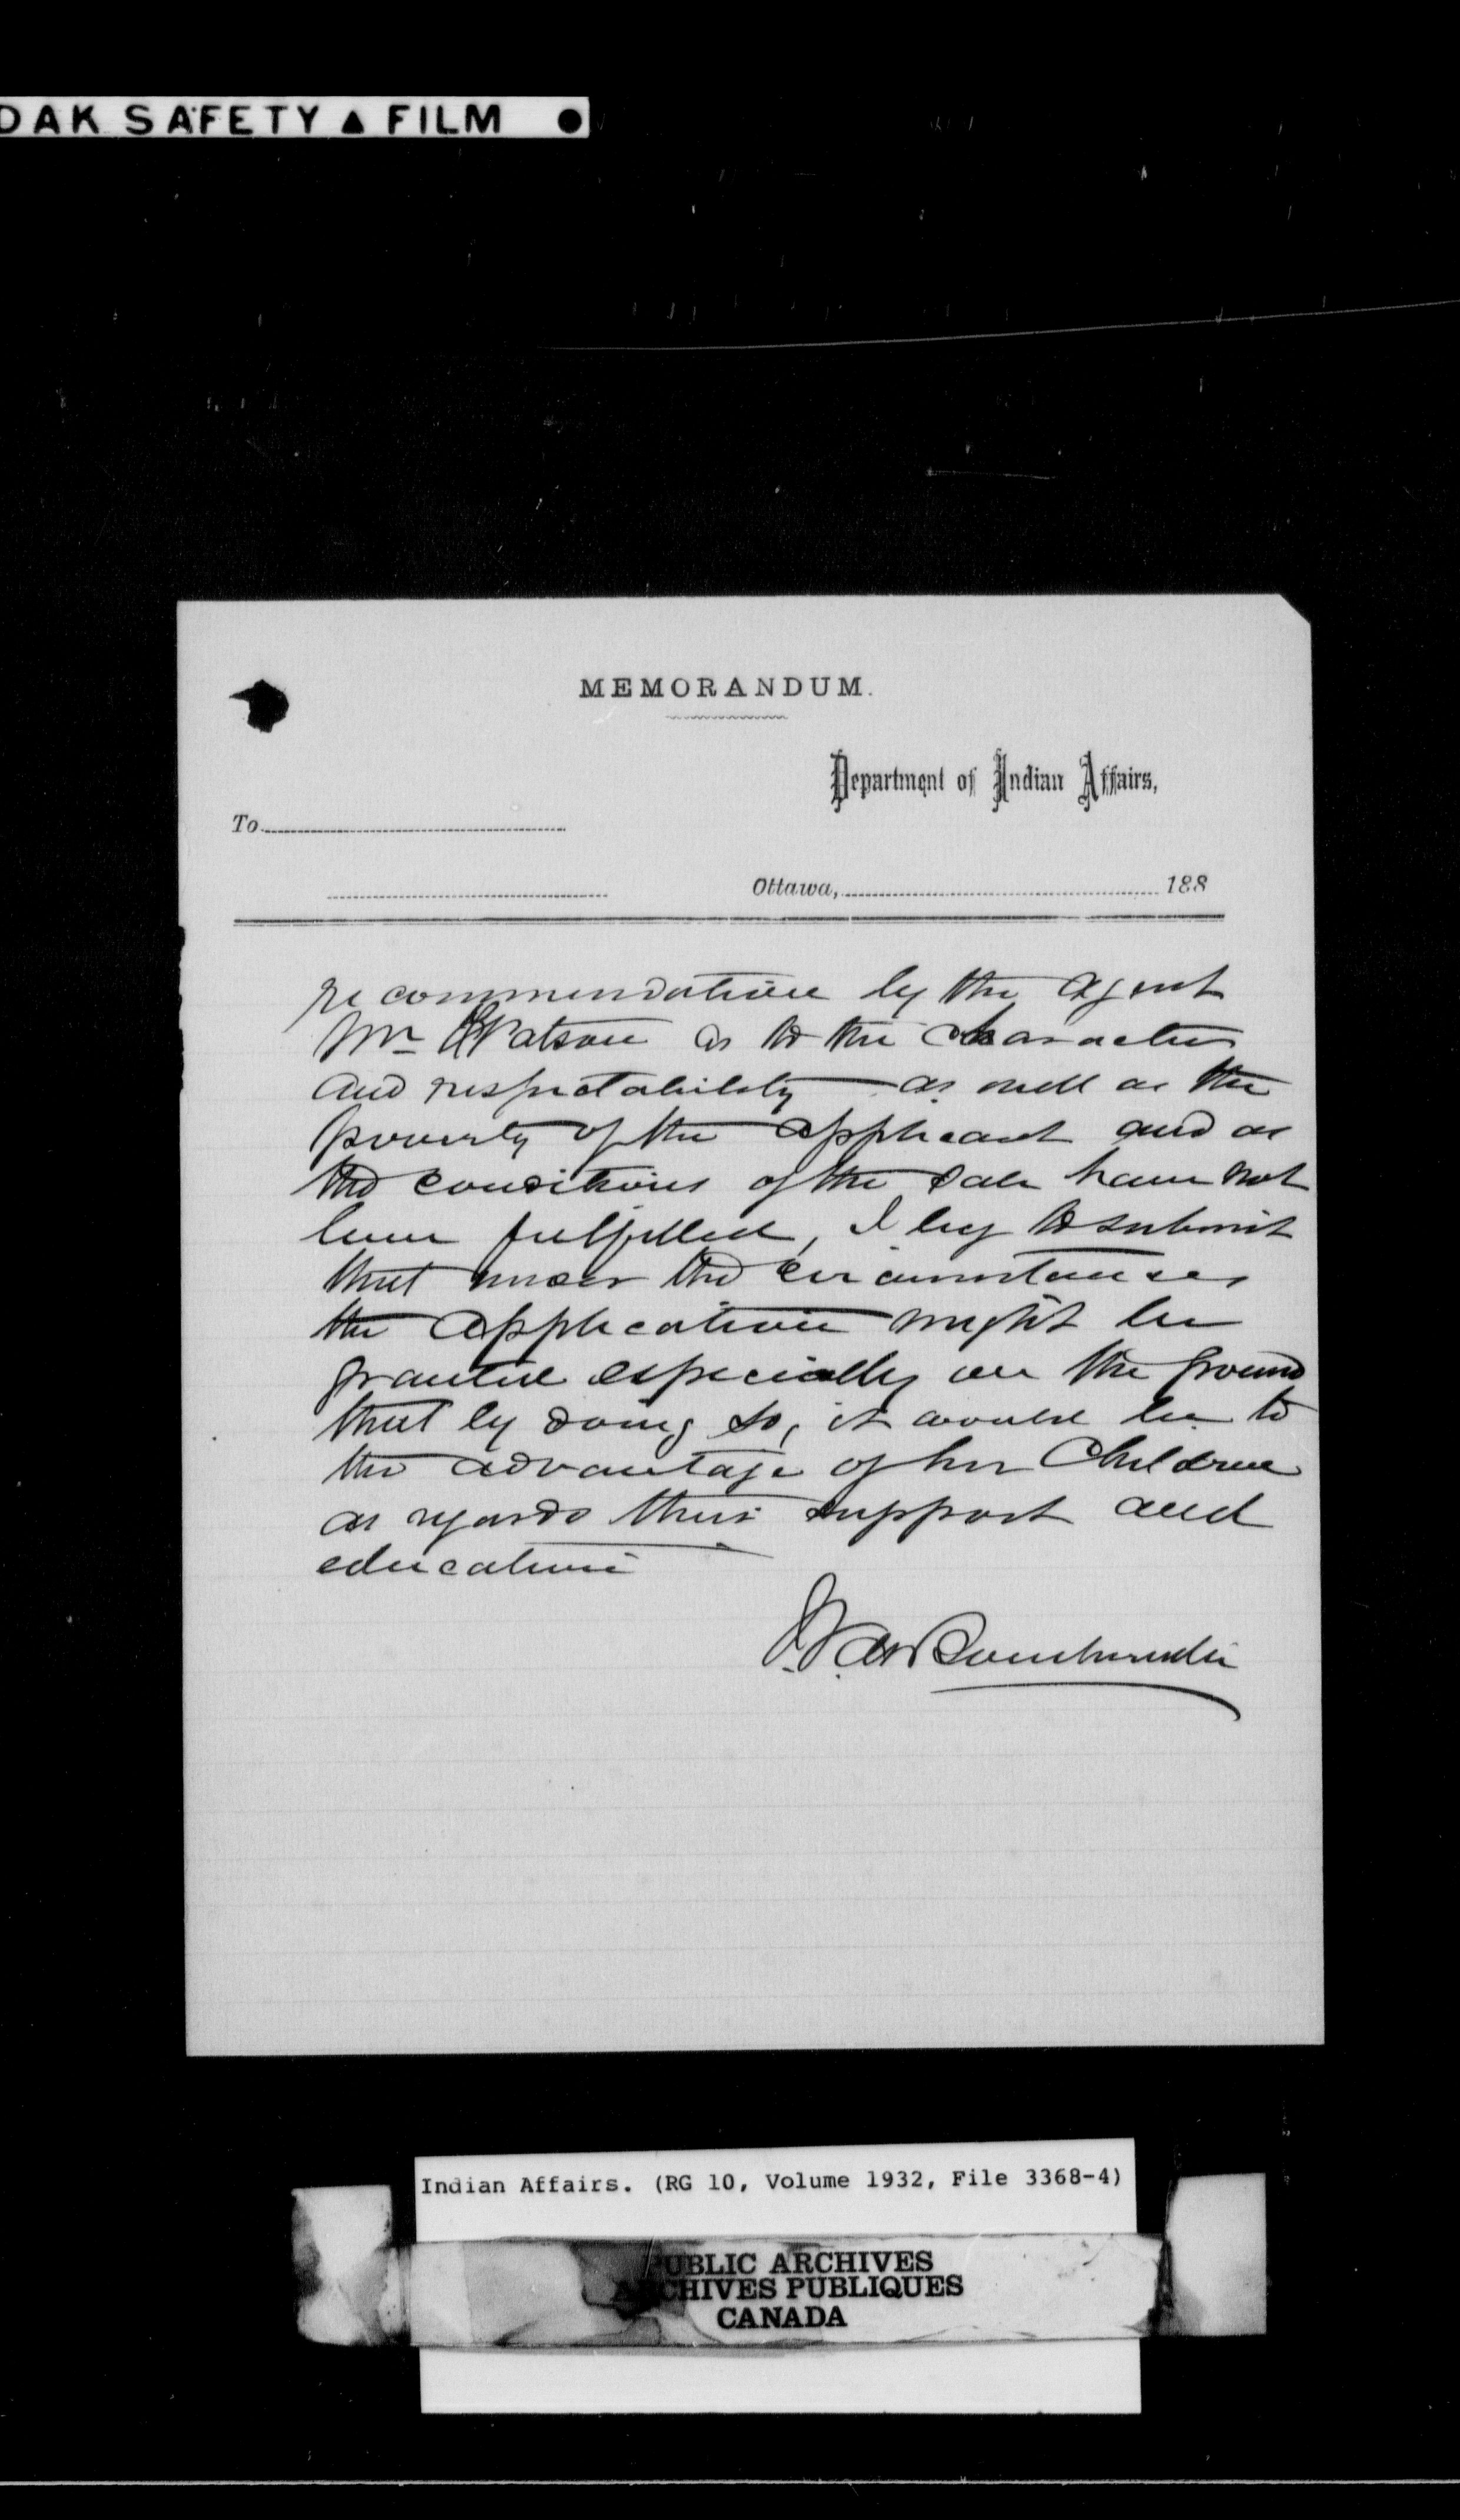 DAK SAFETY ▲ FILM ●
MEMORANDUM.
Department of Indian Affairs,
To
Ottawa, 188
recommendation by the Agent
Mr Watson as to the character
and respectability as well as the
poverty of the applicant and as
the conditions of the Sale have not
been fulfilled, I beg to submit
that under the circumstances
the application might be
granted especially on the ground
that by doing so, it would be to
the advantage of her Children
as regards their support and
education
Indian Affairs. (RG 10, Volume 1932, File 3368-4)
PUBLIC ARCHIVES
ARCHIVES PUBLIQUES
CANADA